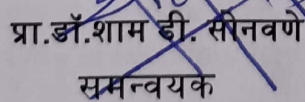 प्रा.डॉ.शाम डी. सोनवणे
समन्वयक